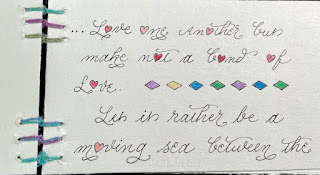 ... Love one another but
make not a bond of
Love.
Let it rather be a
moving sea between the